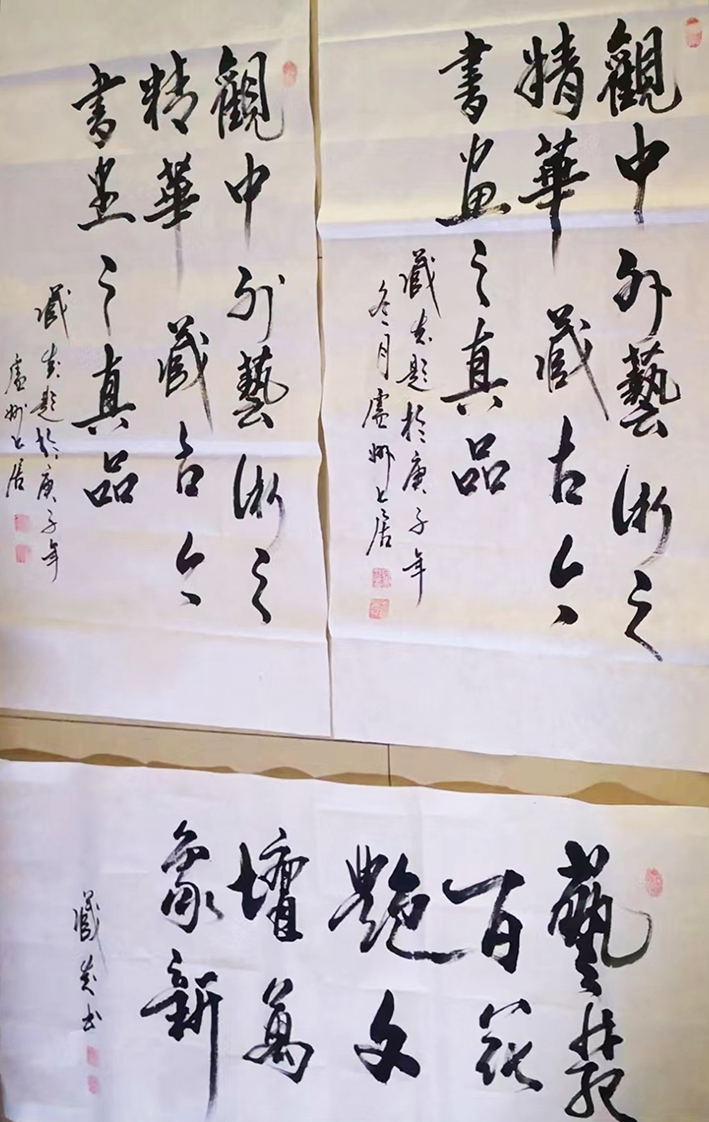 觀中外藝術之
精華藏古今
書画之真品
藏题於庚子年
冬月廬州上居
觀中外藝術之
精華藏古今
書画之真品
藏题於庚子年
廬州上居
藝苑
百花
艷文
壇萬
象新
藏书